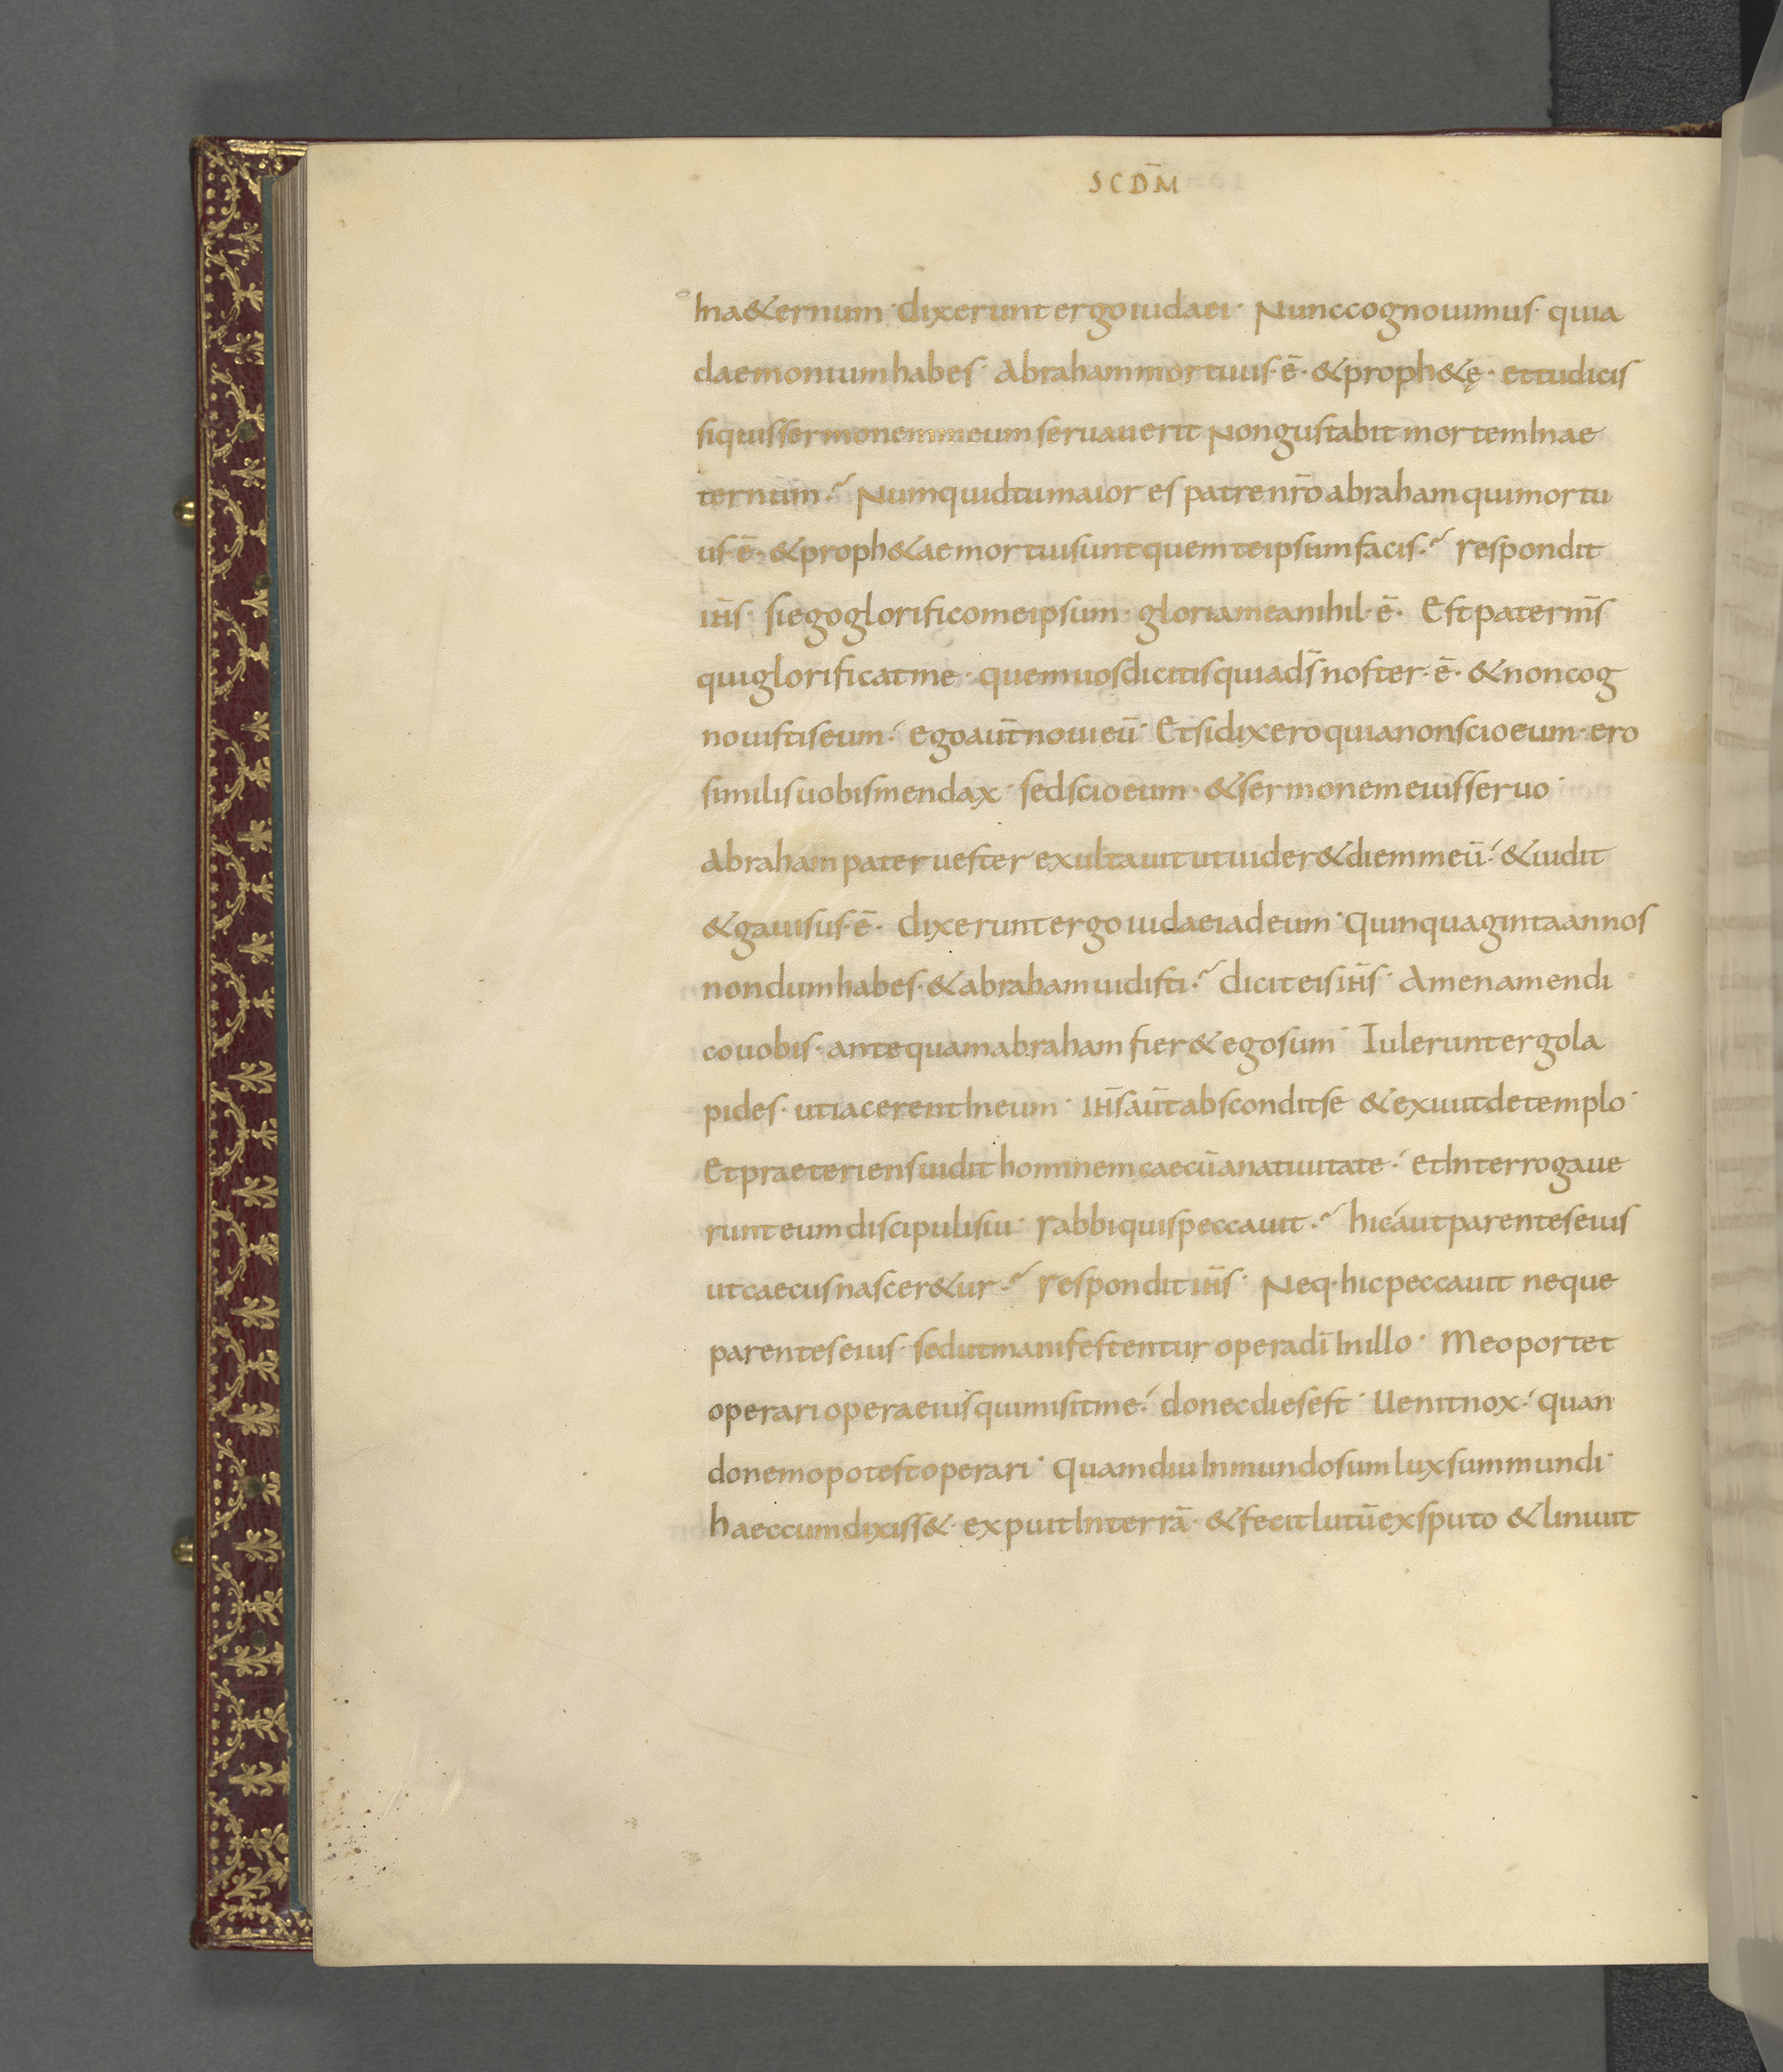 SCD̄M
Ina&ernum· dixerunt ergo iudaei· Nunc cognouimus· quia
daemonium habes· Abraham mortuus·ē· & proph&ę· et tu dicis
si quis sermonem meum seruauerit Non gustabit mortem Inae
ternum? Numquid tu maior es patre nr̄o abraham qui mortu
us·ē· & proph&ae mortui sunt quem te ipsum facis? respondit
ih̄s· si ego glorifico me ipsum· gloria mea nihil·ē· Est pater m̄s
qui glorificat me· quem uos dicitis quia ds̄ noster·ē· & non cog
nouistis eum· ego aūt noui eū· Et si dixero quia non scio eum· ero
similis uobis mendax· sed scio eum· & sermonem eius seruo·
Abraham pater uester exultauit ut uider& diem meū· & uidit
& gauisus·ē· dixerunt ergo iudaei ad eum· Quinquaginta annos
nondum habes· & abraham uidisti? dicit eis ih̄s· Amen amen di
co uobis· antequam abraham fier& ego sum· Tulerunt ergo la
pides· ut iacerent In eum· ih̄s aūt abscondit se & exiuit de templo·
Et praeteriens uidit hominem caecū a natiuitate· et Interrogaue
runt eum discipuli sui· rabbi quis peccauit? hic aut parentes eius
ut caecus nascer&ur? respondit ih̄s· Neq· hic peccauit neque
parentes eius· sed ut manifestentur opera dī In illo· Me oportet
operari opera eius qui misit me· donec dies est· Uenit nox· quan
do nemo potest operari· Quamdiu In mundo sum lux sum mundi·
haec cum dixiss&· expuit In terrā· & fecit lutū ex sputo & liniuit